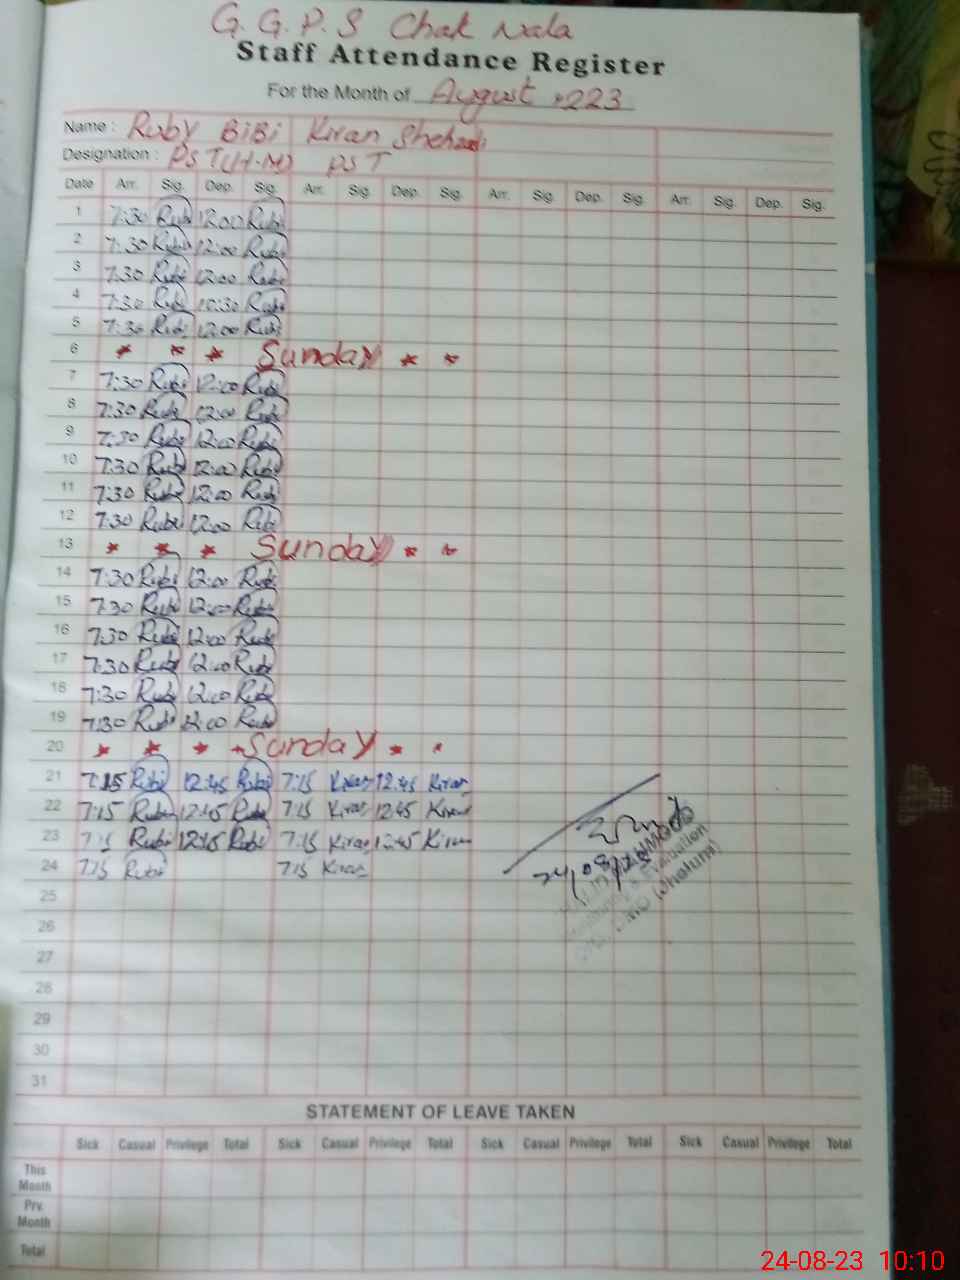 G.G.P.S Chak Nala
Staff Attendance Register
For the Month of August 2223
Name : Ruby BiBi Kiran Shehzadi
Designation : PST(H.M) PST
Date Arr. Sig. Dep. Sig. Arr. Sig. Dep. Sig. Arr. Sig. Dep. Sig. Arr. Sig. Dep. Sig.
1 7:30 Rubi 12:00 Rubi
2 7:30 Rubi 12:00 Rubi
3 7:30 Rubi 12:00 Rubi
4 7:30 Rubi 10:30 Rubi
5 7:30 Rubi 12:00 Rubi
6 * * * Sunday * *
7 7:30 Rubi 12:00 Rubi
8 7:30 Rubi 12:00 Rubi
9 7:30 Rubi 12:00 Rubi
10 7:30 Rubi 12:00 Rubi
11 7:30 Rubi 12:00 Rubi
12 7:30 Rubi 12:00 Rubi
13 * * * Sunday * *
14 7:30 Rubi 12:00 Rubi
15 7:30 Rubi 12:00 Rubi
16 7:30 Rubi 12:00 Rubi
17 7:30 Rubi 12:00 Rubi
18 7:30 Rubi 12:00 Rubi
19 7:30 Rubi 12:00 Rubi
20 * * * * Sunday * *
21 7:15 Rubi 12:45 Rubi 7:15 Kiran 12:45 Kiran
22 7:15 Rubi 12:45 Rubi 7:15 Kiran 12:45 Kiran
23 7:15 Rubi 12:45 Rubi 7:15 Kiran 12:45 Kiran
24 7:15 Rubi 7:15 Kiran
24/08/23
Evaluation
25
26
27
28
29
30
31
STATEMENT OF LEAVE TAKEN
Sick Casual Privilege Total Sick Casual Privilege Total Sick Casual Privilege Total Sick Casual Privilege Total
This
Month
Prv.
Month
Total
24-08-23 10:10